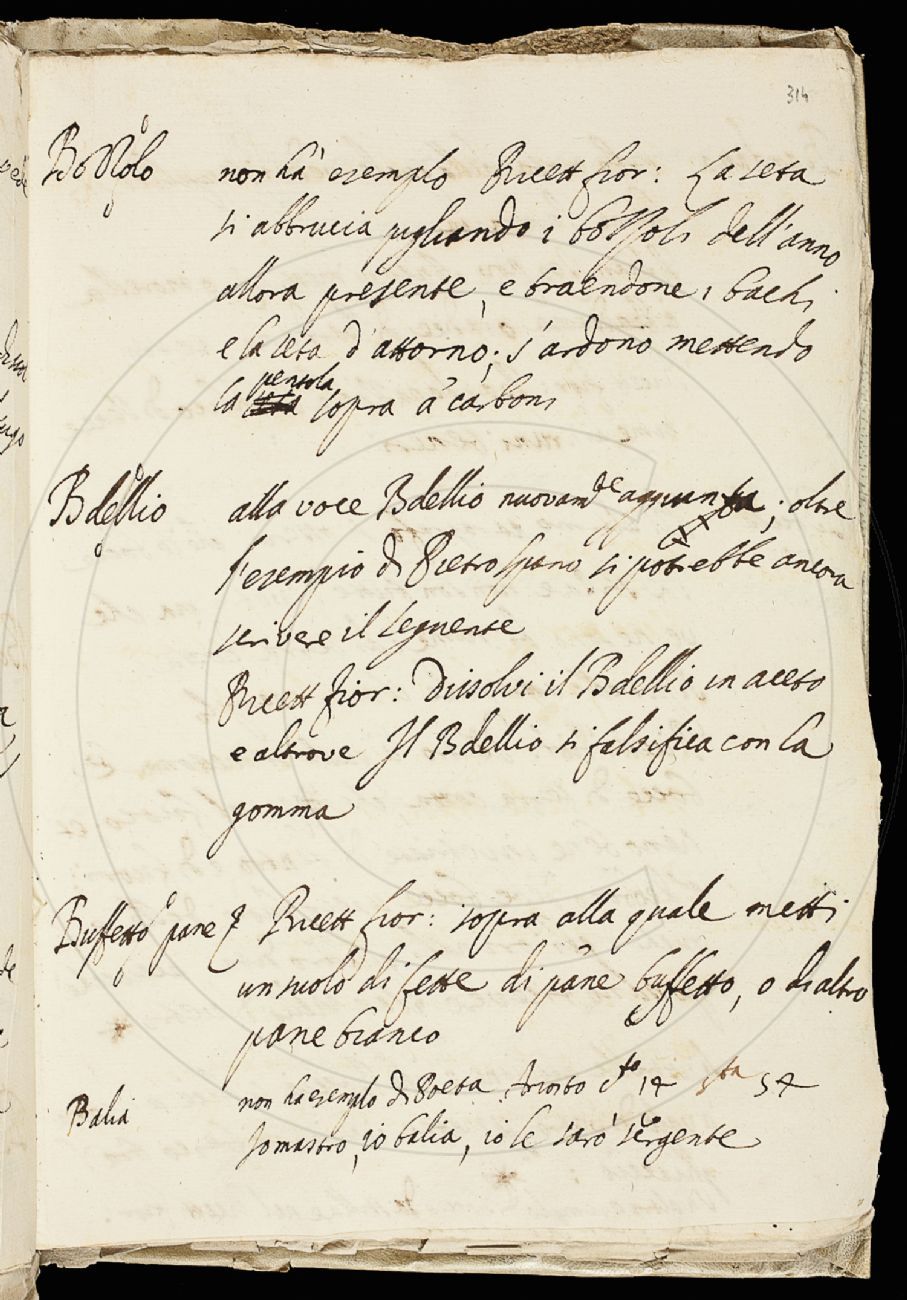 314
Bozzolo non hà esemplo Ricett fior: La seta
si abbrucia pigliando i bozzoli dell'anno
allora presente, e traendone i bachi
e la seta d'attorno; s'ardono mettendo
la pentola sopra a carboni
Bdellio alla voce Bdellio nuovam.te aggiunta; oltre
l'esempio di Pietro Spano si potrebbe ancora
scrivere il seguente
Ricett fior: Dissolvi il Bdellio in aceto
e altrove Il Bdellio si falsifica con la
gomma
Buffetto pane Ricett fior: sopra alla quale metti
un suolo di fette di pane buffetto, o di altro
pane bianco
Balia non ha esemplo di Poeta Ariosto C.to 14 s.ta 54
Io mastro, io balia, io le sarò sergente